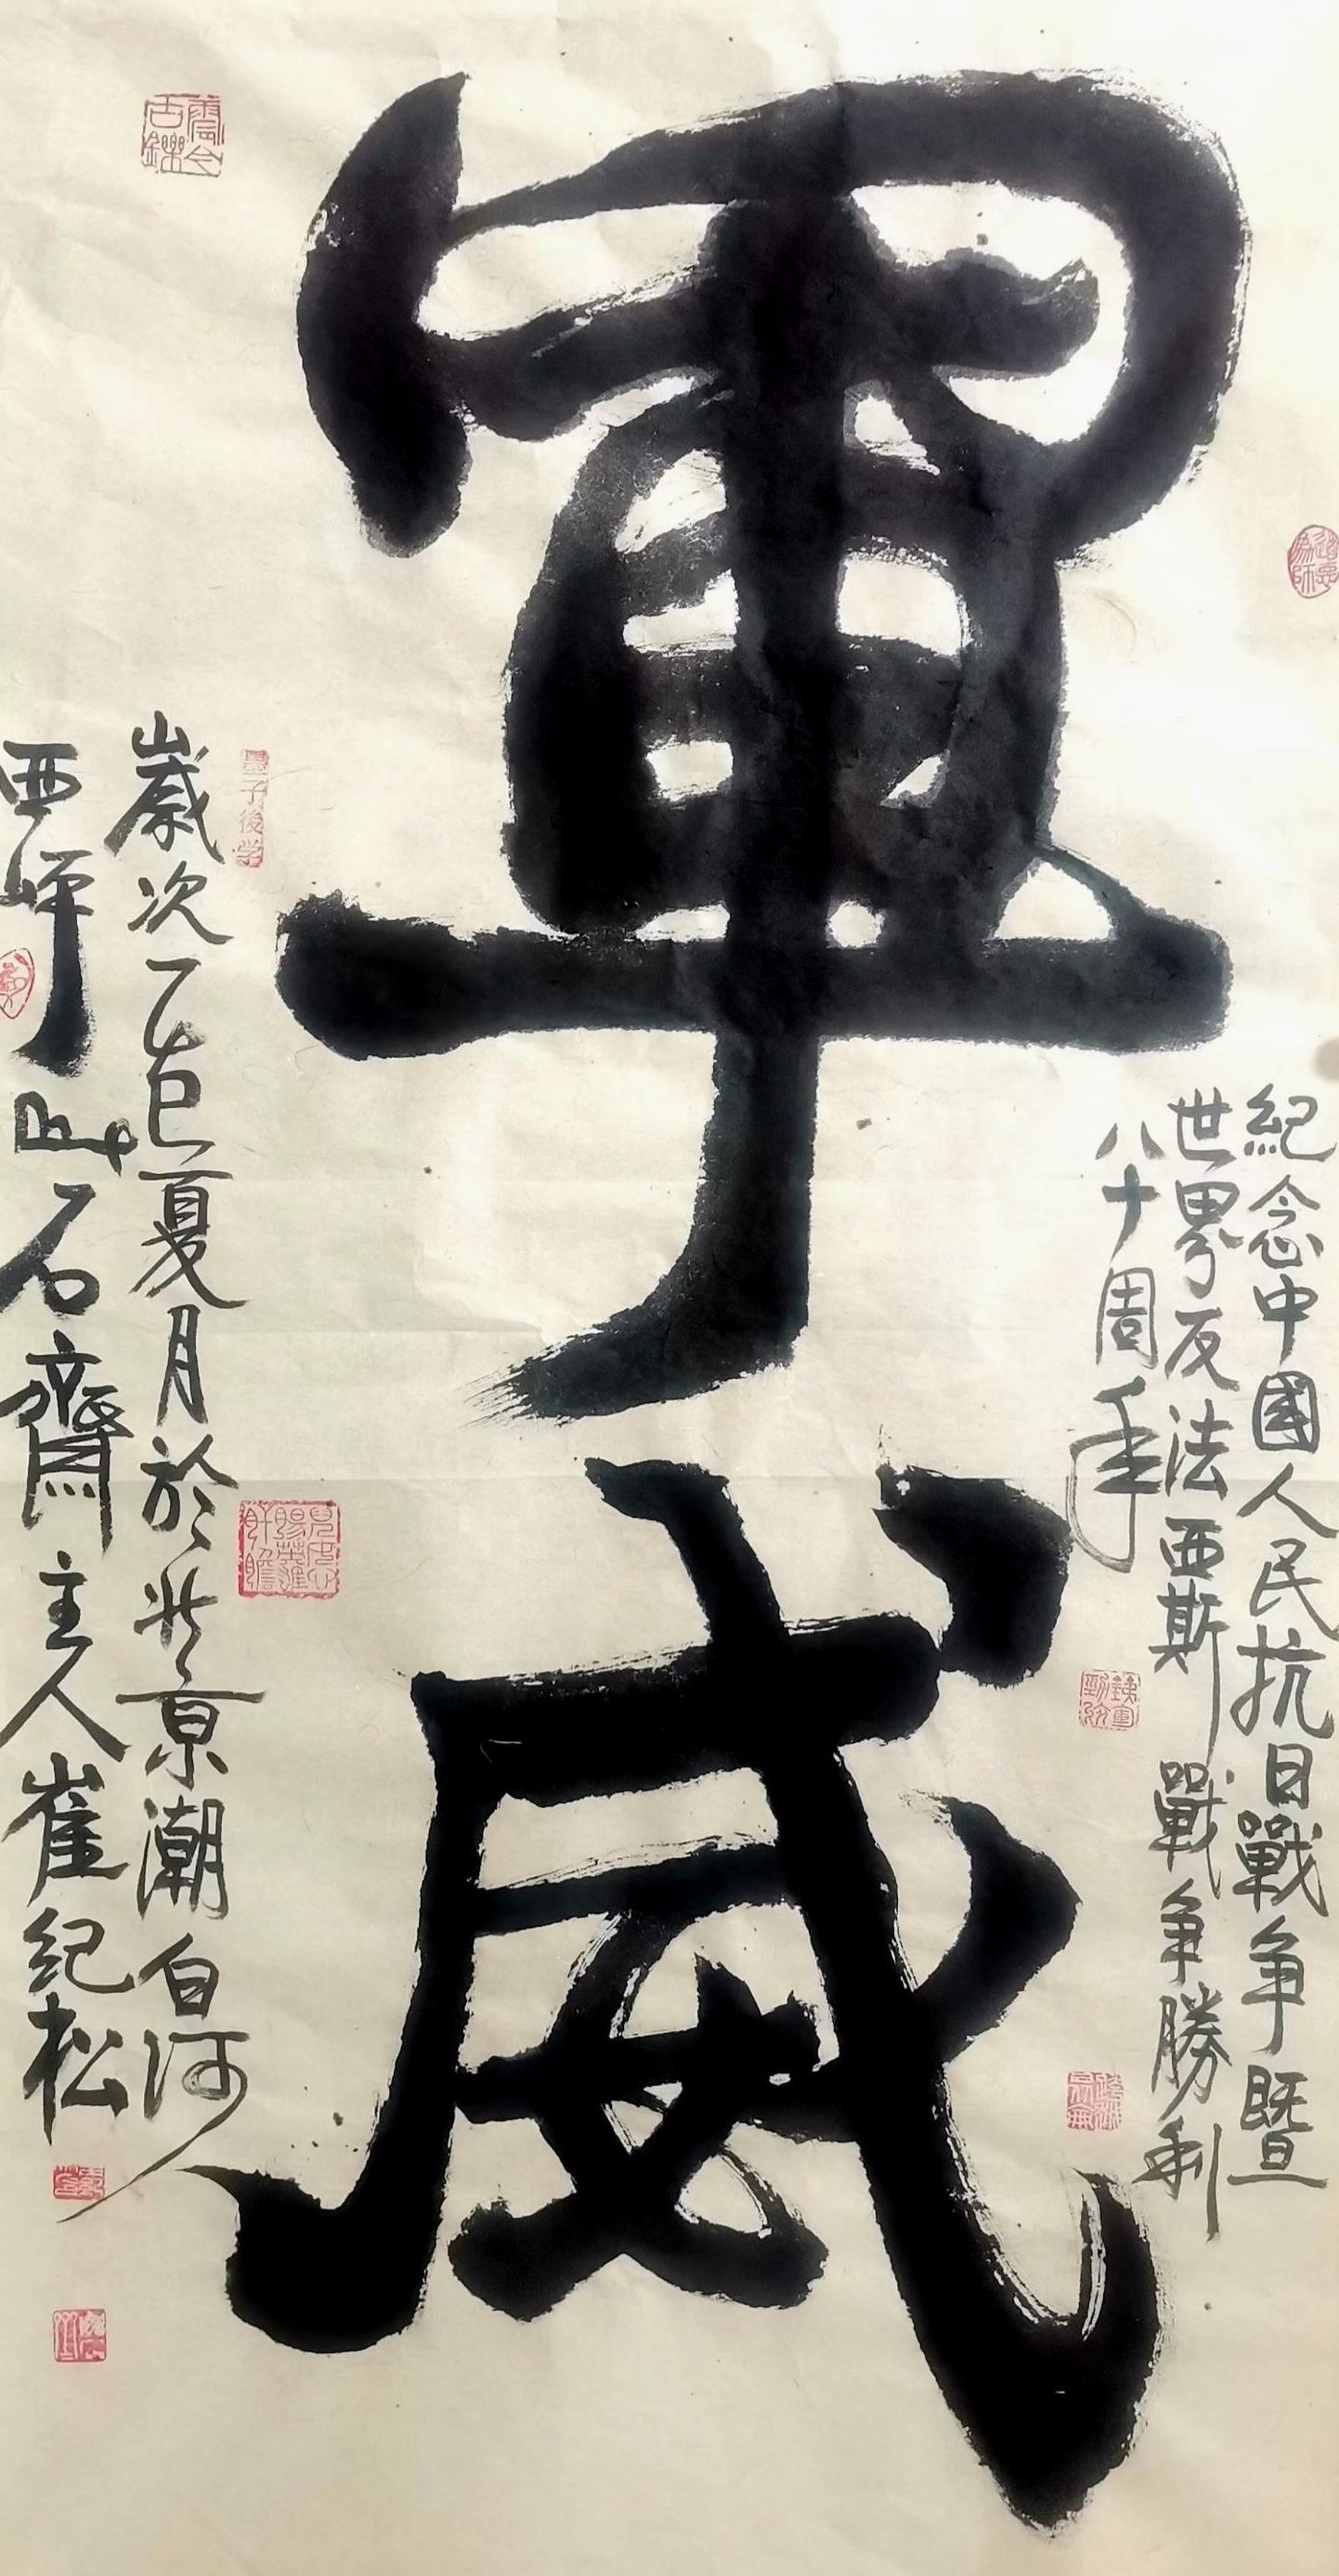 軍威
紀念中國人民抗日戰争暨
世界反法西斯戰争勝利
八十周年
歲次乙巳夏月於北京潮白河
西岸石齋主人崔紀松
墨子後学